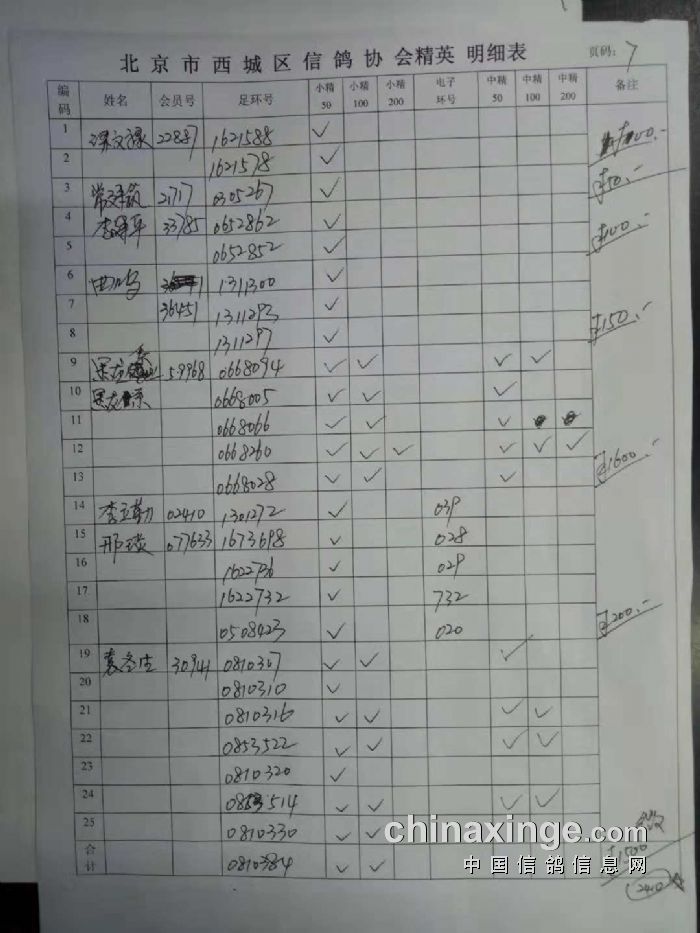 北京市西城区信鸽协会精英 明细表 页码: 7
编码 姓名 会员号 足环号 小精50 小精100 小精200 电子环号 中精50 中精100 中精200 备注
1 22887 1621588 ✓
2 1621578 ✓
3 21717 0305267 ✓ ¥50.-
4 李 平 33785 0652862 ✓ ¥100.-
5 0652852 ✓
6 曲鸣 1311300 ✓
7 36451 1311293 ✓ ¥150.-
8 1311297 ✓
9 59968 0668094 ✓ ✓ ✓ ✓
10 0668005 ✓ ✓ ✓
11 0668066 ✓ ✓ ✓
12 0668260 ✓ ✓ ✓ ✓ ✓ ✓ ¥1600.-
13 0668028 ✓ ✓ ✓
14 李立勤 02410 1301272 ✓ 039
15 邢 077633 1673698 ✓ 028
16 1622736 ✓ 029
17 1622732 ✓ 732
18 0508423 ✓ 020 ¥200.-
19 袁冬生 30941 0810307 ✓ ✓ ✓
20 0810310 ✓
21 0810316 ✓ ✓ ✓ ✓
22 0853522 ✓ ✓ ✓ ✓
23 0810320 ✓
24 514 ✓ ✓ ✓ ✓
25 0810330 ✓ ✓
合计 0810384 ✓ ✓ ¥1500
chinaxinge.com
中国信鸽信息网